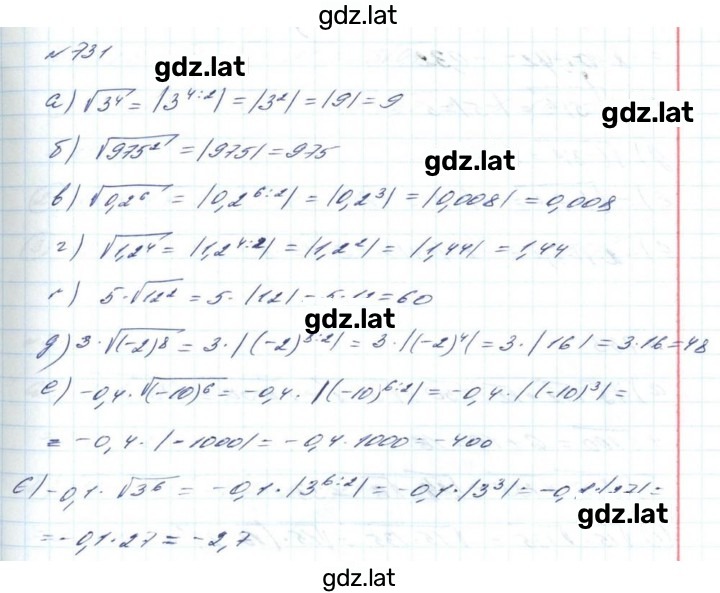 gdz.lat
№731
gdz.lat
а) √3⁴ = |3^(4:2)| = |3²| = |9| = 9
gdz.lat
б) √975² = |975| = 975
gdz.lat
в) √0,2⁶ = |0,2^(6:2)| = |0,2³| = |0,008| = 0,008
г) √1,2⁴ = |1,2^(4:2)| = |1,2²| = |1,44| = 1,44
5·√12² = 5·|12| = 5·12 = 60
gdz.lat
д) 3·√(-2)⁸ = 3·|(-2)^(8:2)| = 3·|(-2)⁴| = 3·|16| = 3·16 = 48
е) -0,4·√(-10)⁶ = -0,4·|(-10)^(6:2)| = -0,4·|(-10)³| =
= -0,4·|-1000| = -0,4·1000 = -400
є) -0,1·√3⁶ = -0,1·|3^(6:2)| = -0,1·|3³| = -0,1·|27| =
gdz.lat
= -0,1·27 = -2,7
gdz.lat